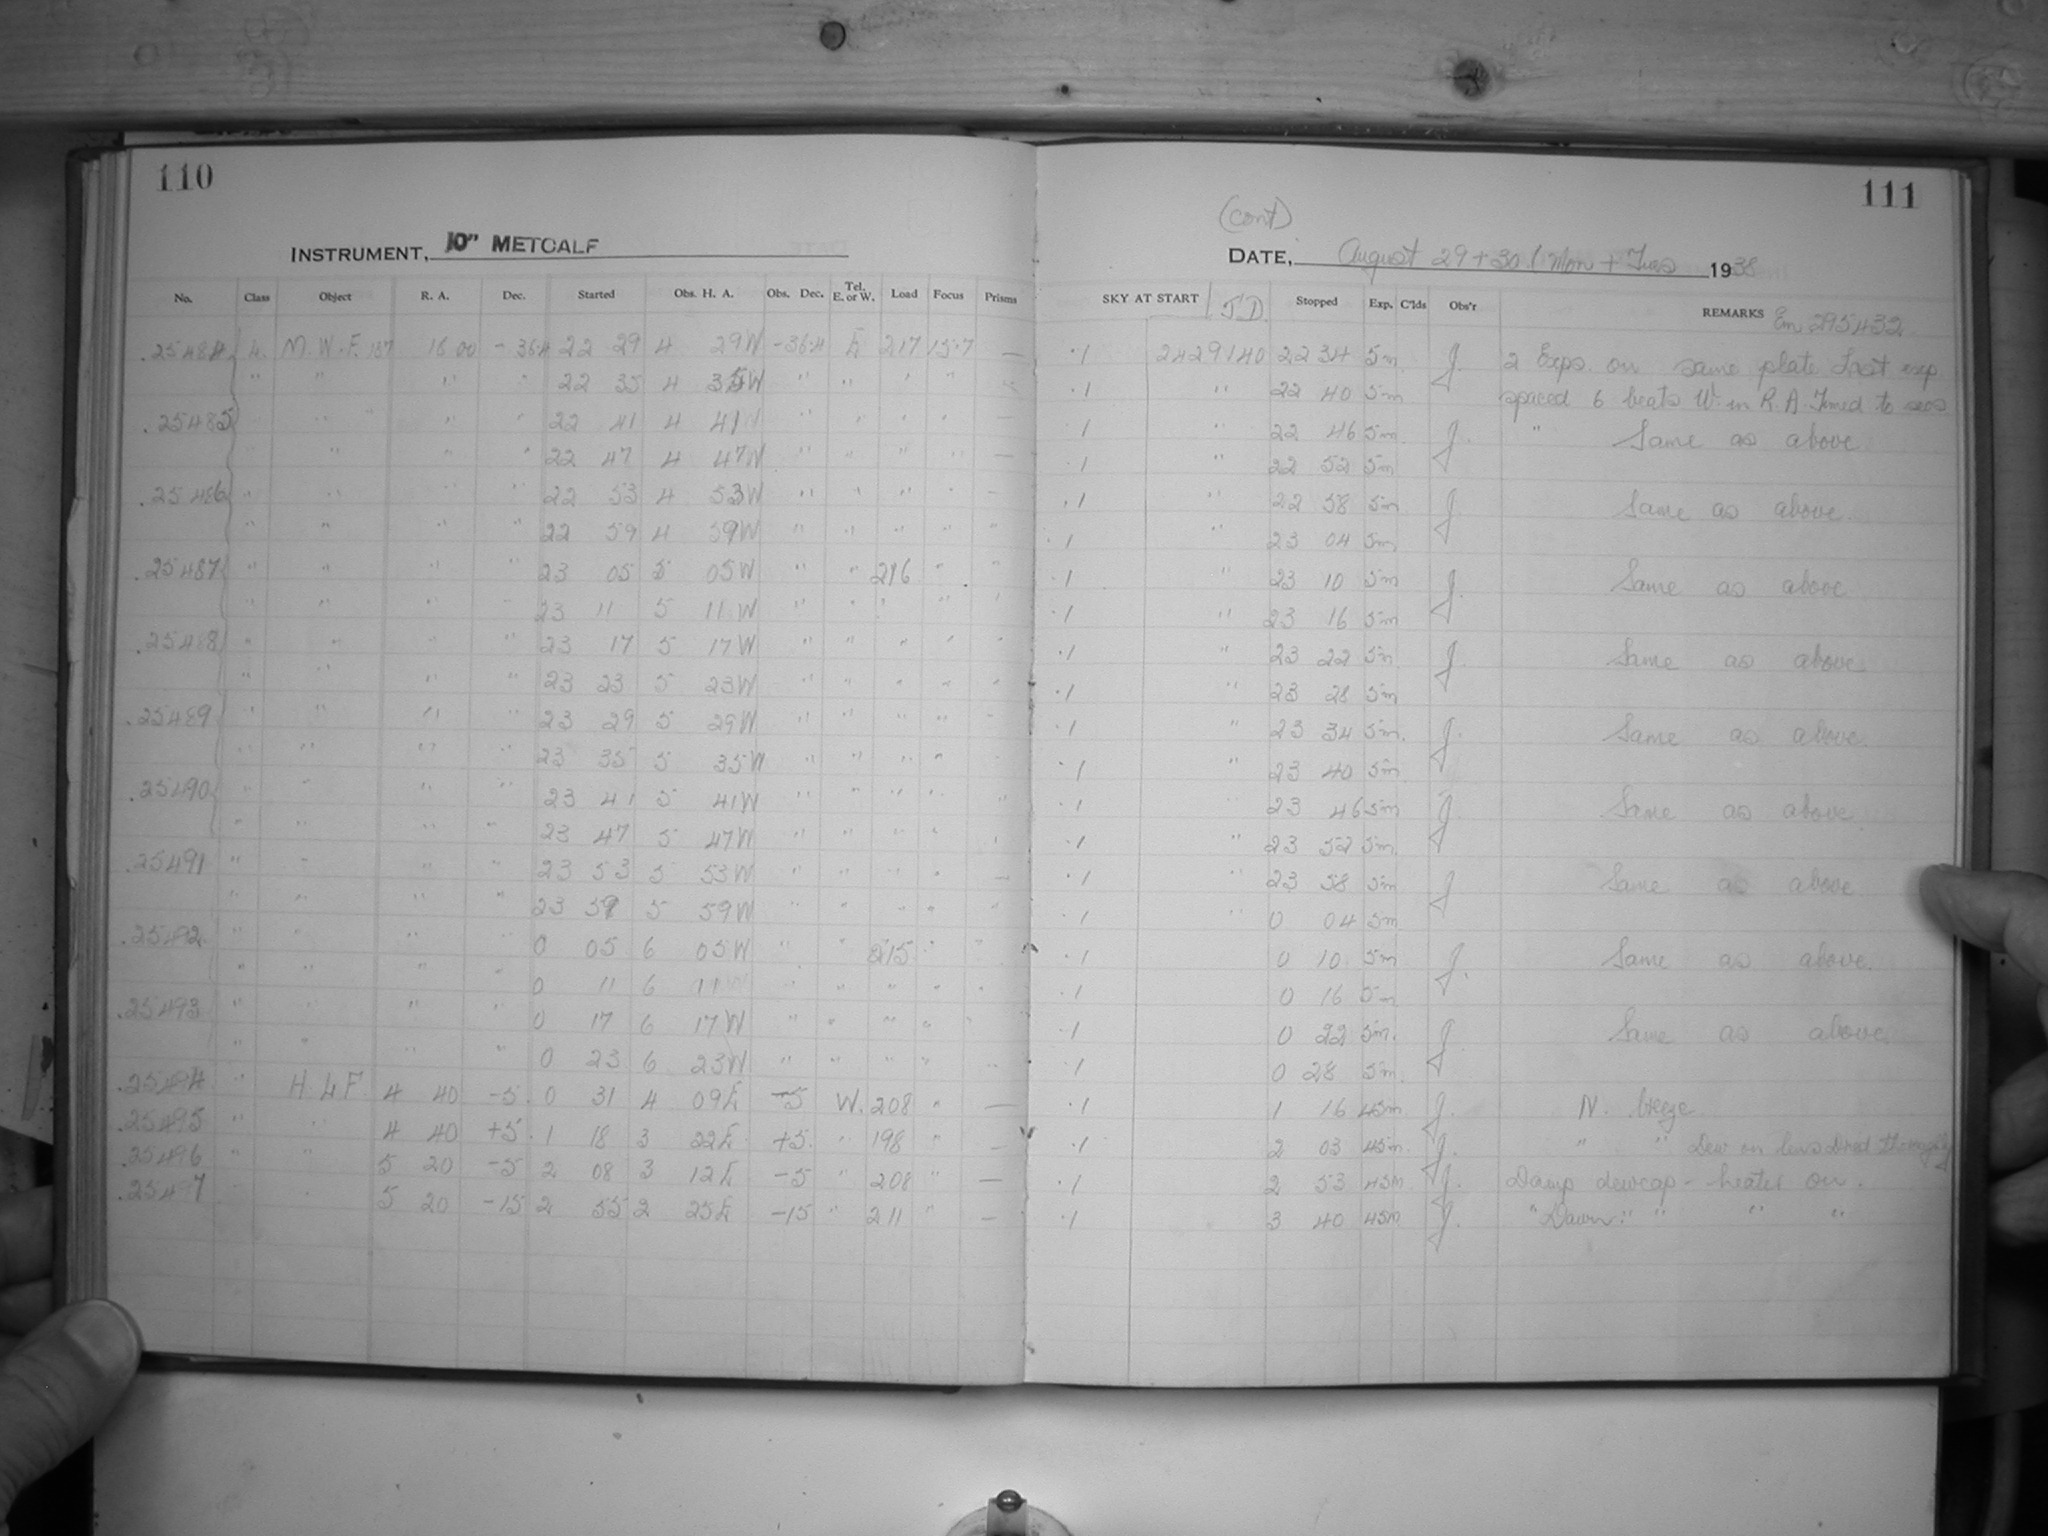 110
INSTRUMENT, 10" METCALF
No. Class Object R. A. Dec. Started Obs. H. A. Obs. Dec. Tel. E. or W. Load Focus Prisms
.25484 M. W. F. 187 18 00 -36.4 22 29 4 29W -36.4 E 217 15.7 —
" " " " 22 35 4 35W " " " "
.25485 " " " " 22 41 4 41W " " " " —
" " " 22 47 4 47W " " " " —
.25486 " " " " 22 53 4 53W " " " " —
" " " " 22 59 4 59W " " " " "
.25487 " " " " 23 05 5 05W " " 216 " "
" " " " 23 11 5 11W " " " " "
.25488 " " " " 23 17 5 17W " " " " "
" " " " 23 23 5 23W " " " " "
.25489 " " " " 23 29 5 29W " " " "
" " " " 23 35 5 35W " " " "
.25490 " " " " 23 41 5 41W " " " " "
" " " " 23 47 5 47W " " " "
.25491 " " " " 23 53 5 53W " " " " —
" " " " 23 59 5 59W " " " " "
.25492 " " " " 0 05 6 05W " " 215 " "
" " " " 0 11 6 11W " " " " "
.25493 " " " " 0 17 6 17W " " " " "
" " " " 0 23 6 23W " " " "
.25494 " 4 40 -5 0 31 4 09E -5 W. 208 " —
.25495 " " 4 40 +5 1 18 3 22E +5 " 198 " —
.25496 " " 5 20 -5 2 08 3 12E -5 " 208 " —
.25497 5 20 -15 2 55 2 25E -15 " 211 " —
111
(cont)
DATE, August 29+30 (Mon + Tues 1938
SKY AT START J.D. Stopped Exp. C'lds Obs'r REMARKS Em. 295432
.1 2429140 22 34 5m J. 2 Exps. on same plate Last exp
.1 " 22 40 5m spaced 6 beats W. in R.A. Timed to secs
.1 " 22 46 5m J. " Same as above
.1 " 22 52 5m
.1 " 22 58 5m J. Same as above.
.1 " 23 04 5m
.1 " 23 10 5m J. Same as above
.1 " 23 16 5m
.1 " 23 22 5m J. Same as above
.1 " 23 28 5m
.1 " 23 34 5m. J. Same as above.
.1 " 23 40 5m
.1 " 23 46 5m J. Same as above.
.1 " 23 52 5m
.1 " 23 58 5m J Same as above
.1 " 0 04 5m
.1 0 10 5m J. Same as above.
.1 0 16 5m
.1 0 22 5m. J. Same as above.
.1 0 28 5m.
.1 1 16 45m J. N. breeze
.1 2 03 45m J. " " Dew on lens Dried
.1 2 53 45m J. Damp dewcap - heater on.
.1 3 40 45m J. "Dawn" " " "